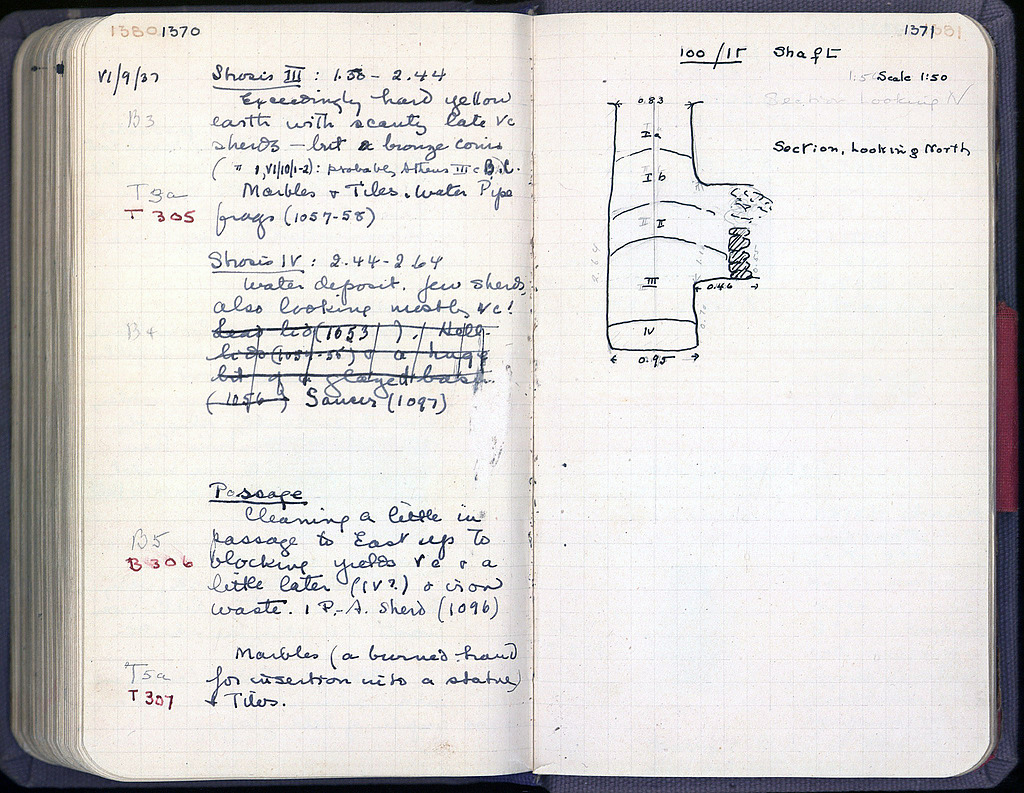 1380 1370
VI/9/37
Strosis III : 1.38 - 2.44
Exceedingly hard yellow
B3
earth with scanty late Vc
sherds - but a bronze coin
( " , VI/10/1-2) : probably Athens III c B.C.
T3a
Marbles + Tiles. Water Pipe
T 305
frags (1057-58)
Strosis IV : 2.44-2.64
Water deposit. few sherds,
also looking mostly Vc!
B4
Lead lid (1053 ). Hell.
lids (1054-55) + a huge
bit of a glazed basi
(1056 ) Saucer (1097)
Passage
Cleaning a little in
B5
passage to East up to
B 306
blocking yields Vc + a
little later (IV?) + iron
waste. 1 P.-A. sherd (1096)
Marbles (a burned hand
T5a
for insertion into a statue)
T 307
+ Tiles.
1371
100/ΙΓ Shaft
Scale 1:50
Section Looking N
Section, Looking North
0.83
Ia
Ib
II
III
0.46
IV
0.95
2.64